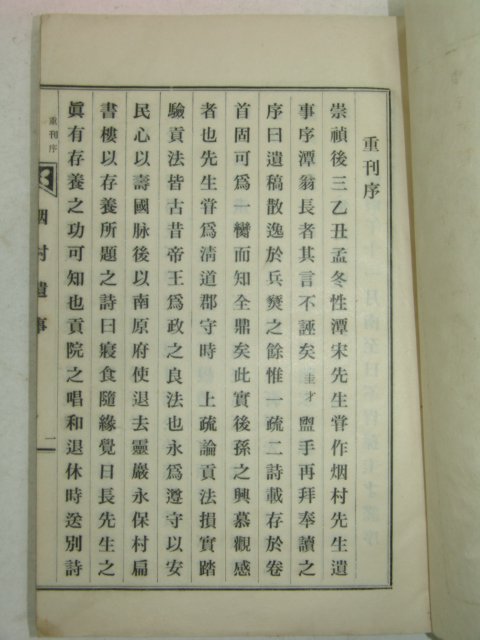 重刊序
崇禎後三乙丑孟冬性潭宋先生甞作烟村先生遺
事序潭翁長者其言不誣矣圭才盥手再拜奉讀之
序曰遺稿散逸於兵燹之餘惟一疏二詩載存於卷
首固可爲一臠而知全鼎矣此實後孫之興慕觀感
者也先生甞爲淸道郡守時 上疏論貢法損實踏
驗貢法皆古昔帝王爲政之良法也永爲遵守以安
民心以壽國脉後以南原府使退去靈巖永保村扁
書樓以存養所題之詩曰寢食隨緣覺日長先生之
眞有存養之功可知也貢院之唱和退休時送別詩
重刊序
烟村遺事
一